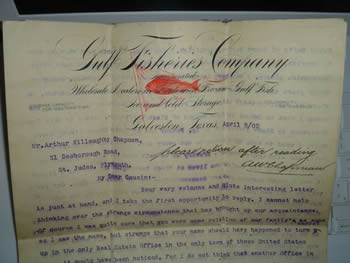 Gulf Fisheries Company
Wholesale Dealers in Fresh and Frozen Gulf Fish
Ice and Cold Storage
Galveston, Texas, April 8/05
Mr. Arthur Killeughy Chapman,
51 Desborough Road,
St. Judes, Plymouth.
please return after reading
AWChapman
My Dear Cousin:-
Your very welcome and interesting letter
is just at hand, and I take the first opportunity to reply. I cannot help
thinking over the strange circumstance that has brought up our acquaintance.
Of course I was quite sure that you were some relation of our family as soon
as I saw the name, but strange that your name should have happened to turn
up in the only Real Estate Office in the only town of these United States
it would have been noticed, for I do not think that another office in